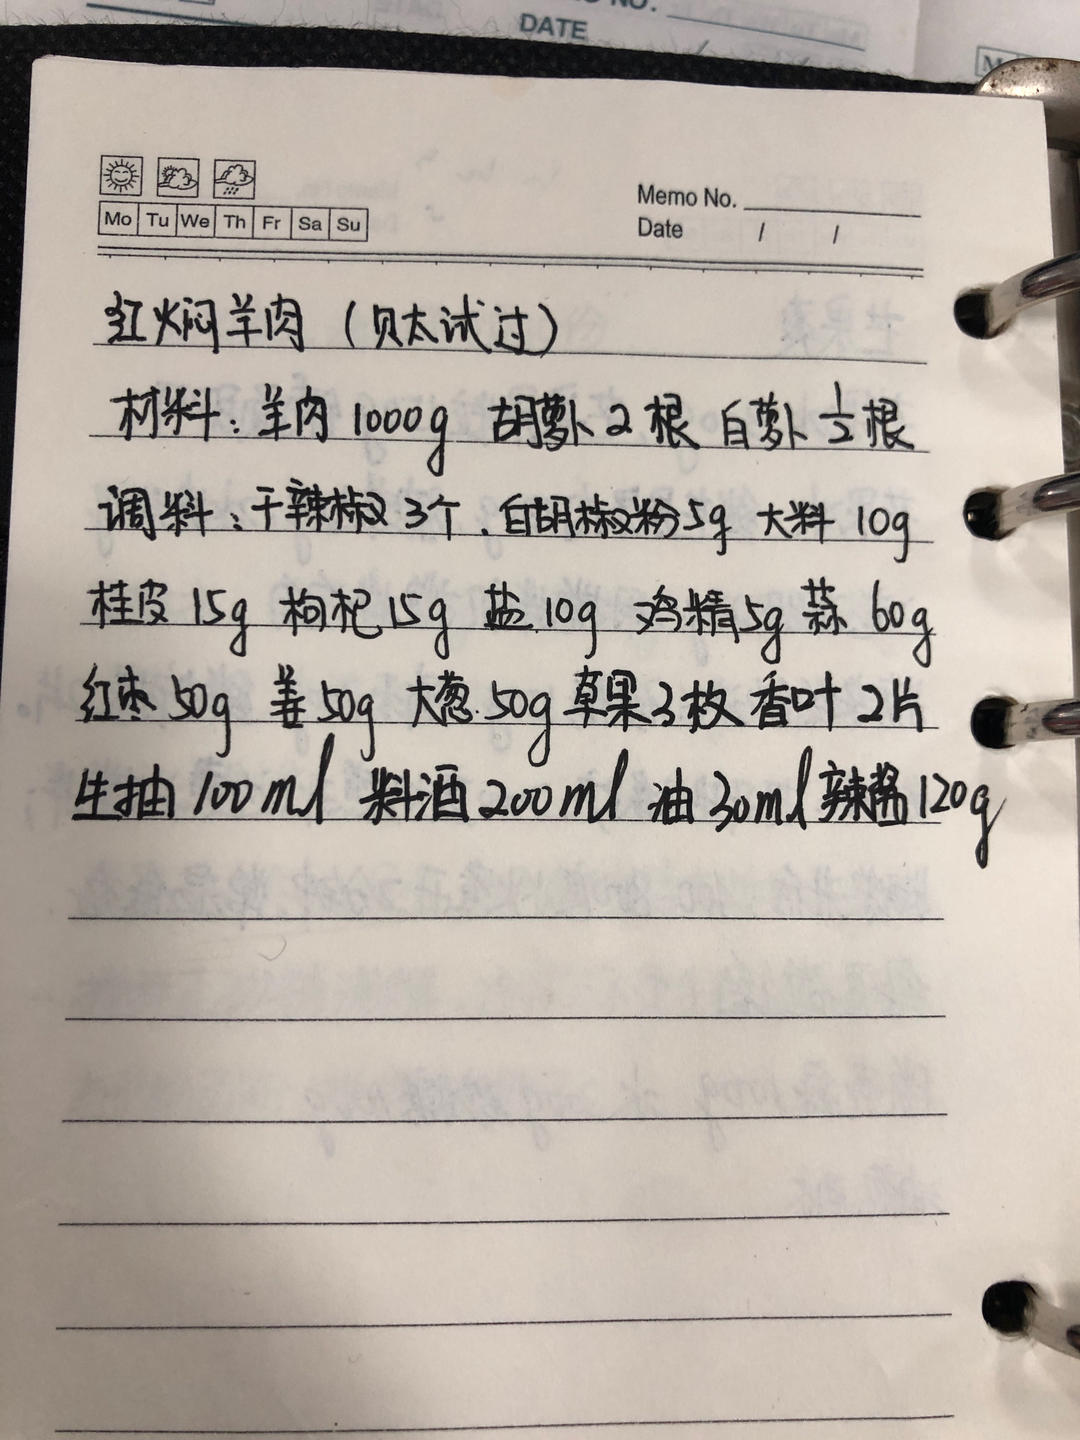 DATE
Mo Tu We Th Fr Sa Su
Memo No.
Date / /
红火焖羊肉（贝太试过）
材料：羊肉 1000g 胡萝卜 2 根 白萝卜 1/2 根
调料：干辣椒 3个、白胡椒粉 5g 大料 10g
桂皮 15g 枸杞 15g 盐 10g 鸡精 5g 蒜 60g
红枣 50g 姜 50g 大葱 50g 草果 3 枚 香叶 2 片
生抽 100ml 料酒 200ml 油 30ml 辣酱 120g